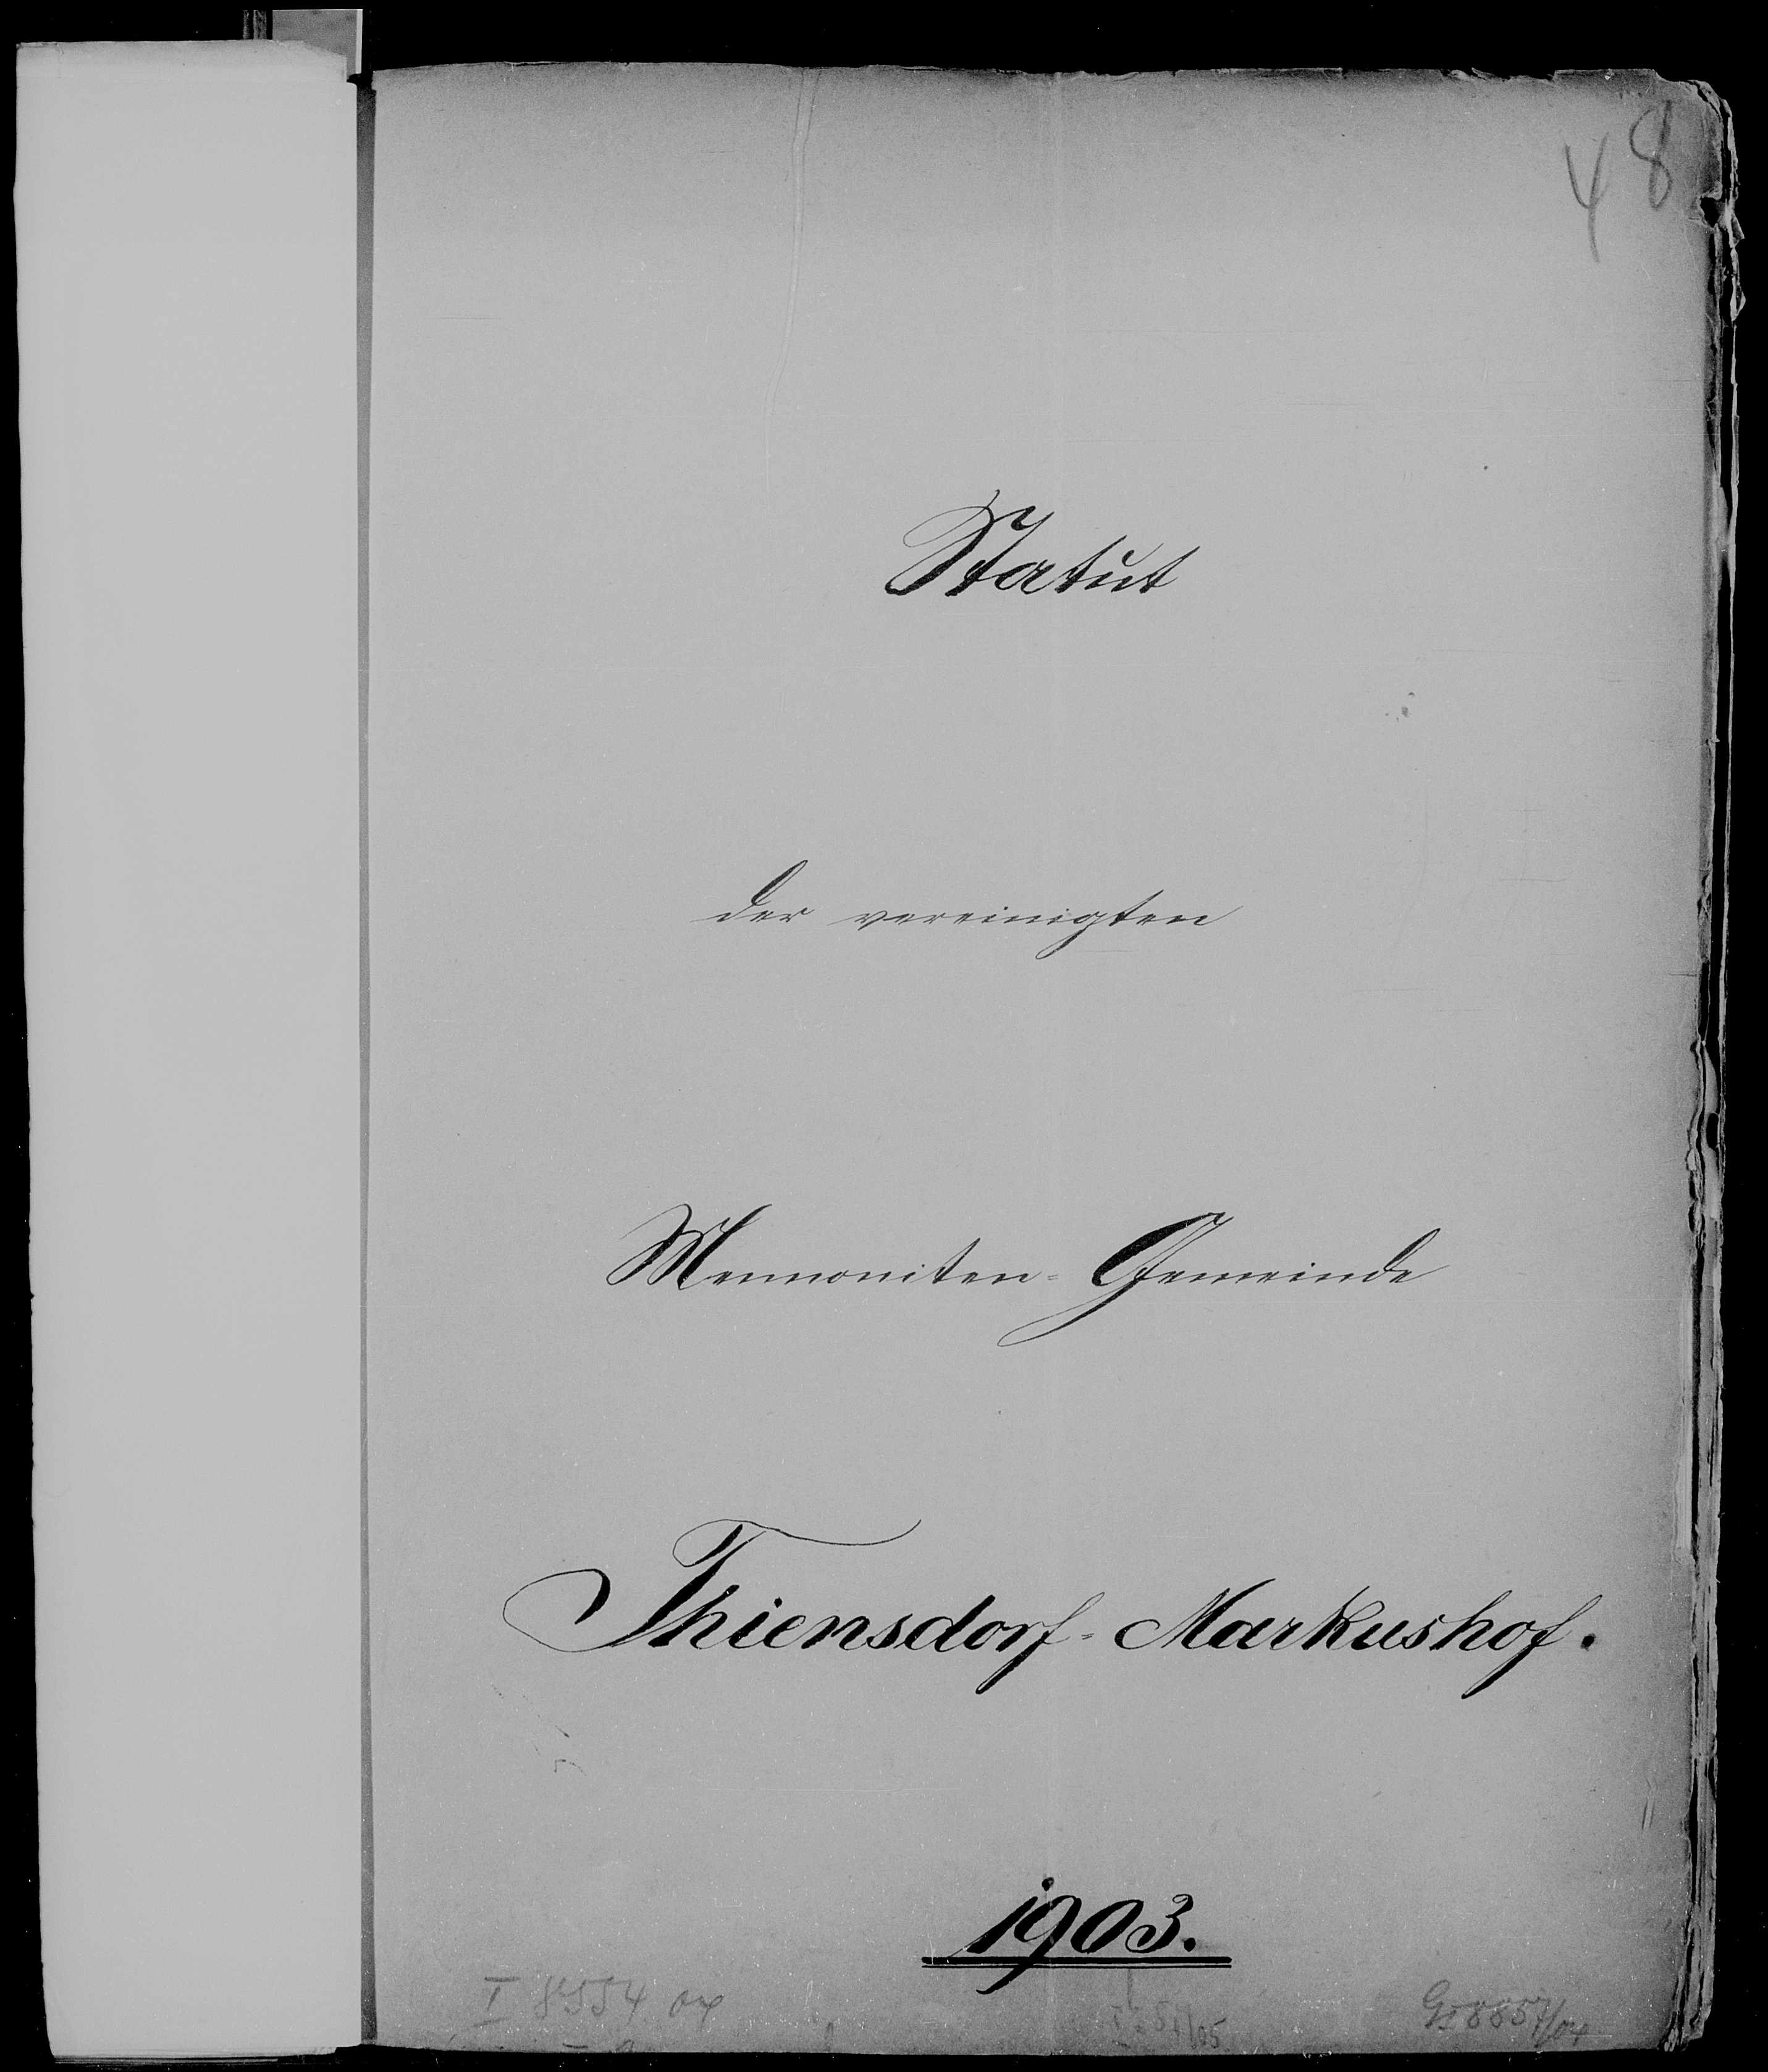 48
Statut
der vereinigten
Mennoniten-Gemeinde
Thiensdorf-Markushof.
1903.
I 8554 04